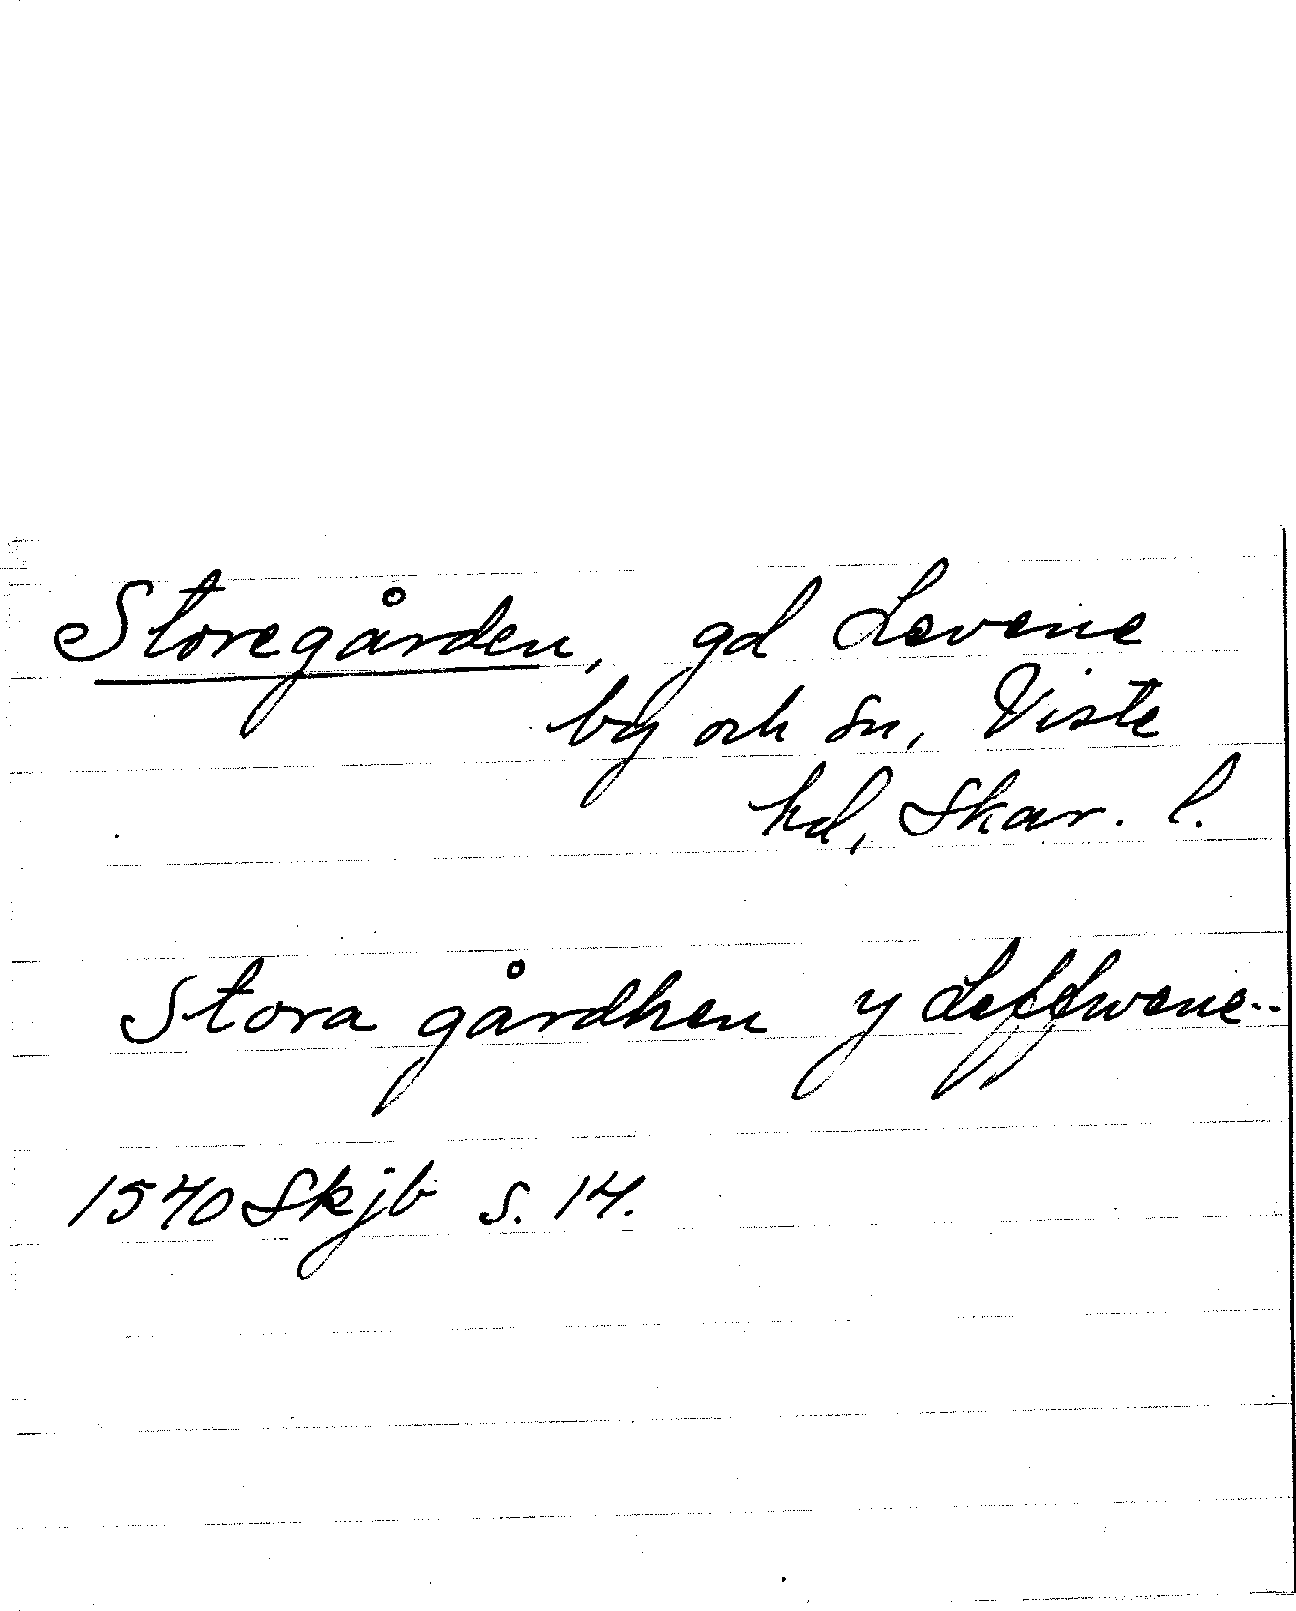 Storegården, gd Levene
by och sn, Viste
hd, Skar. l.
Stora gårdhen y Leffwene..
1540 Skjb s. 14.